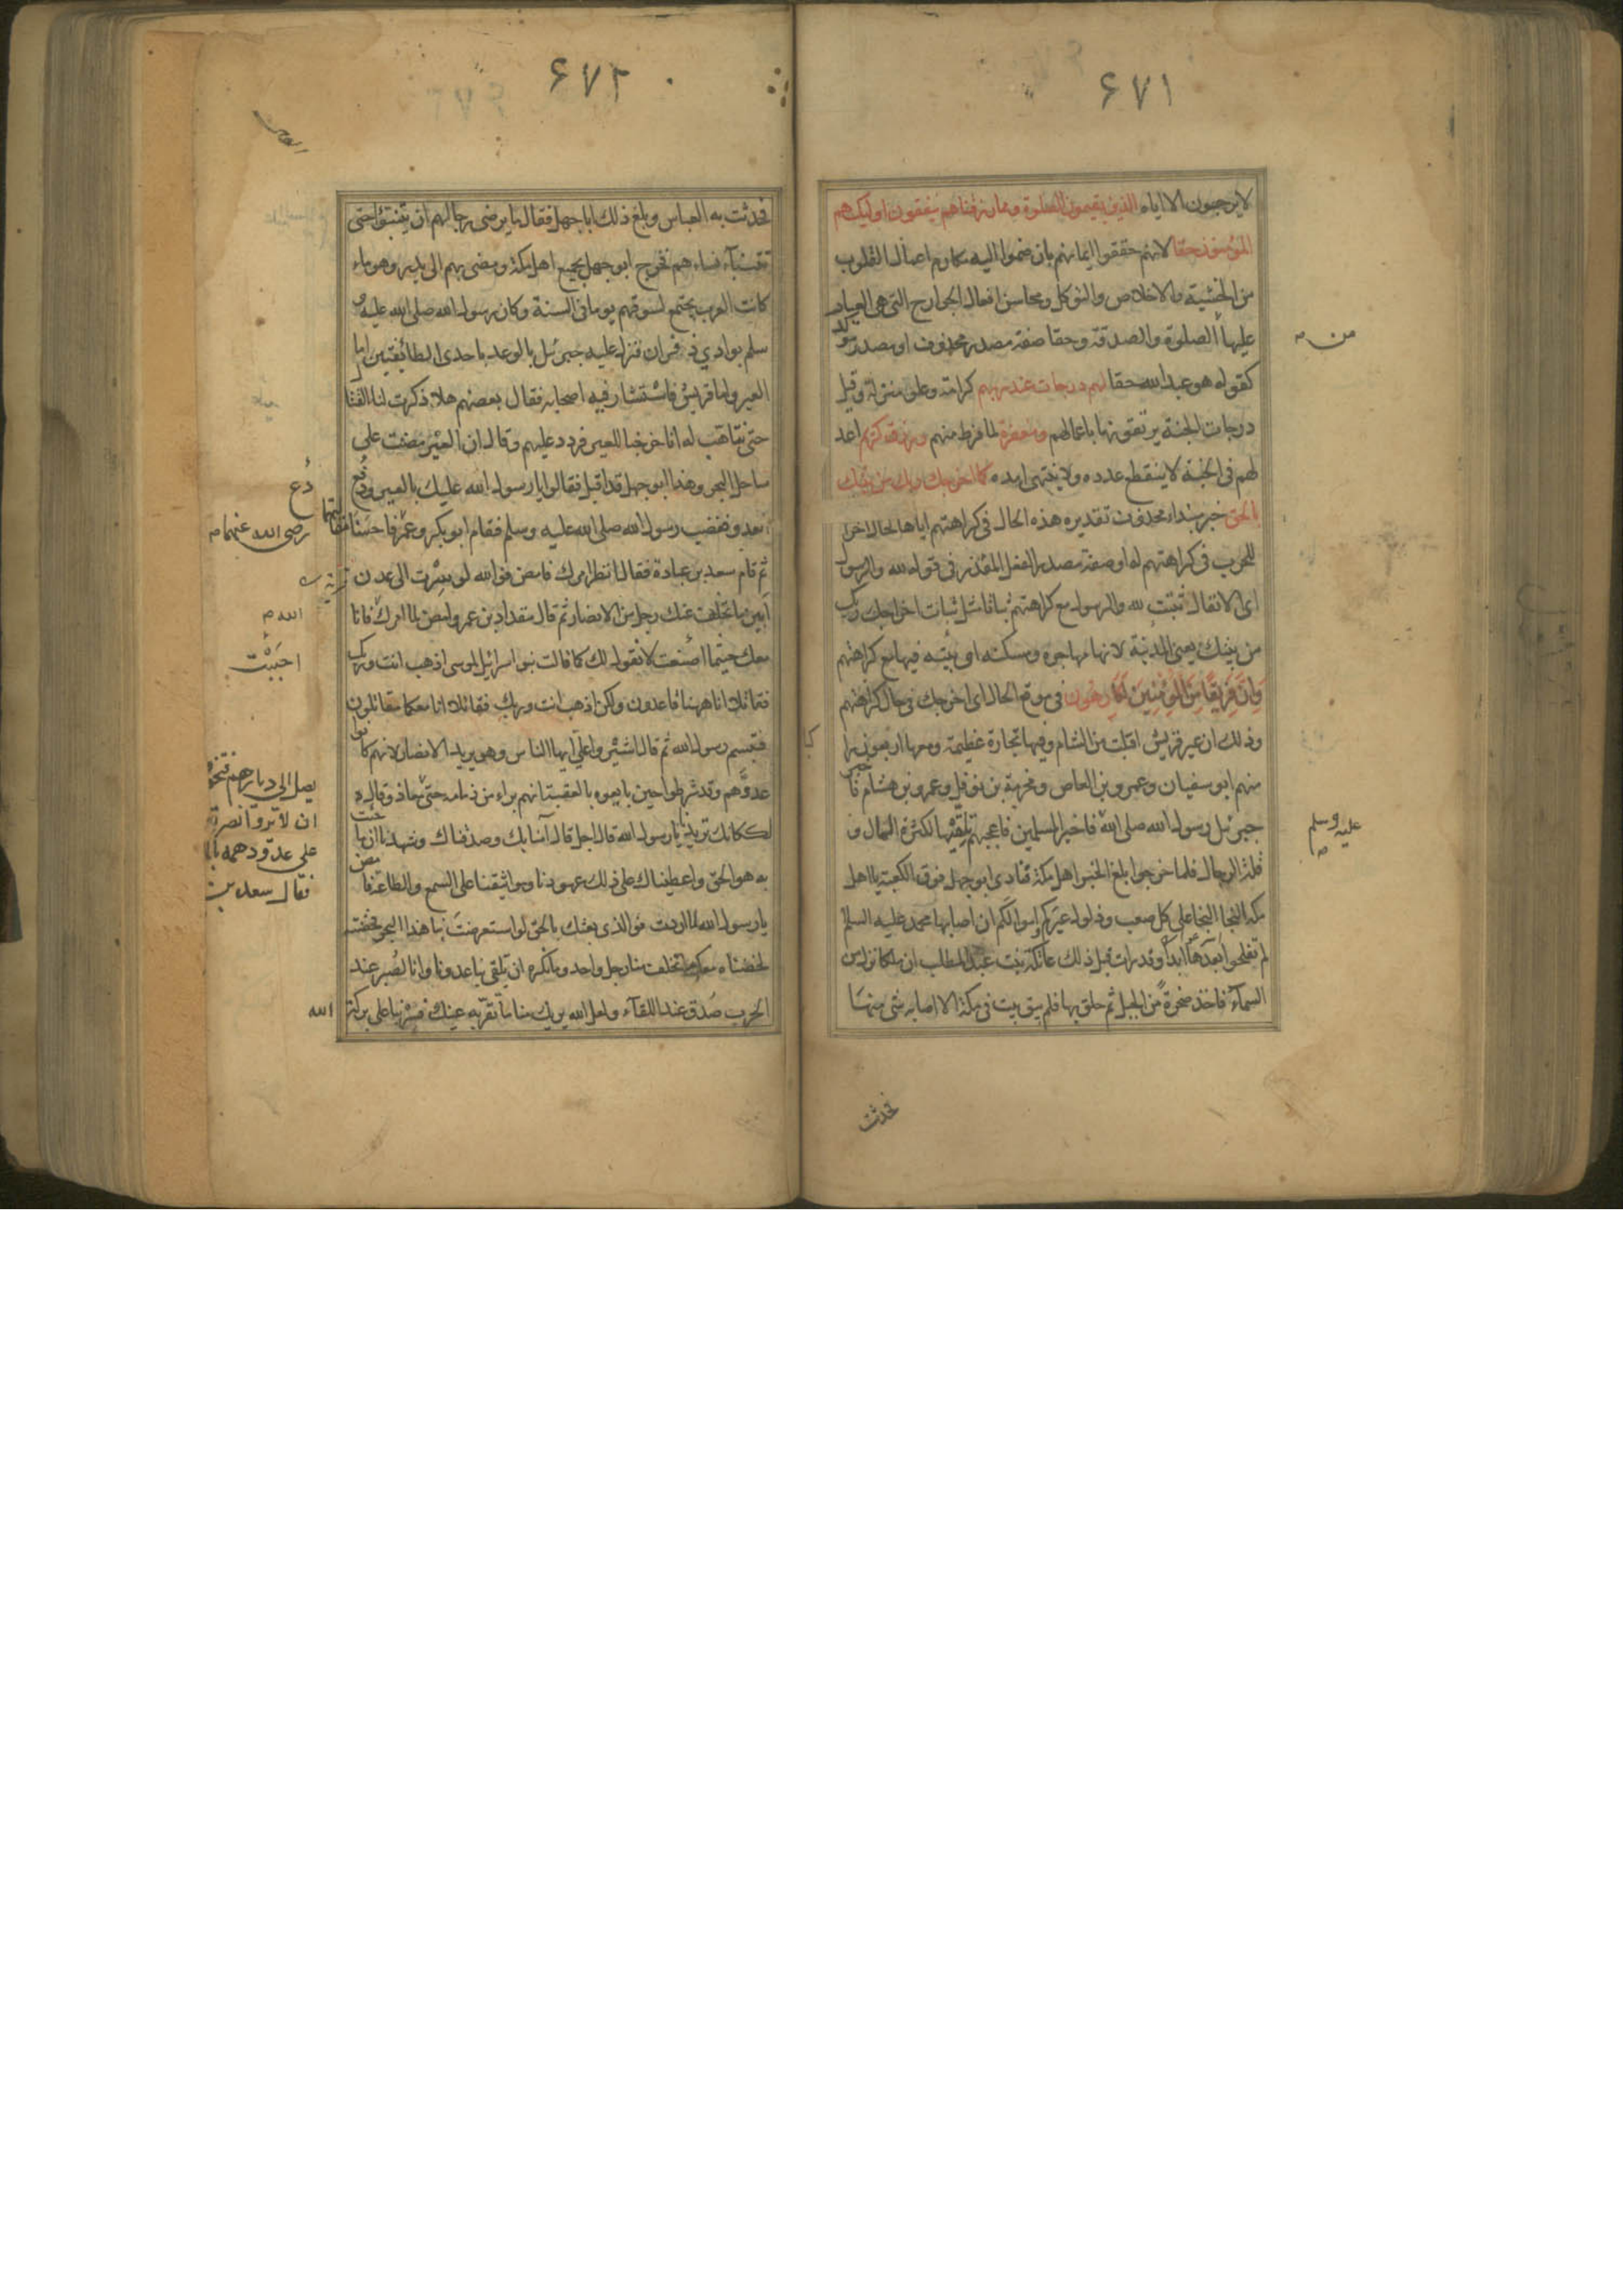 ۶۷۱
لا يرجون الا اياه الذين يقيمون الصلوة ومما رزقناهم ينفقون اوليك هم
المؤمنون حقا لانهم حققوا ايمانهم بان ضموا اليه مكارم اعمال القلوب
من الخشية والاخلاص والتوكل ومحاسن افعال الجوارح التى هى العيار
عليها الصلوة والصدقة وحقا صفة مصدر محذوف او مصدر موكد
كقوله هو عبد الله حقا لهم درجات عند ربهم كرامة وعلو منزلة وقيل
درجات الجنة يرتقونها باعمالهم ومغفرة لما فرط منهم ورزق كريم اعد
لهم فى الجنة لا ينقطع عدده ولا ينتهى امده كما اخرجك ربك من بيتك
بالحق خبر مبتداء محذوف تقديره هذه الحال فى كراهتهم اياها كحال اخراجك
للحرب فى كراهتهم له او صفة مصدر الفعل المقدر فى قوله لله والرسول
اى الانفال تثبت لله والرسول مع كراهتهم ثباتا مثل ثبات اخراجك ربك
من بيتك يعنى المدينة لانها مهاجره ومسكنه او بيته فيها مع كراهتهم
وَاِنَّ فَرِيقًا مِنَ المُؤْمِنِينَ لَكَارِهُون فى موقع الحال اى اخرجك فى حال كراهتهم
وذلك ان عير قريش اقبلت من الشام وفيها تجارة عظيمة ومعها اربعون راكبا
منهم ابو سفيان وعمرو بن العاص ومخرمة بن نوفل وعمرو بن هشام فاخبر
جبرئل رسول الله صلى الله فاخبر المسلمين فاعجبهم تلقيها لكثرة المال و
قلة الرجال فلما خرجوا بلغ الخبر اهل مكة فنادى ابو جهل فوق الكعبة يا اهل
مكة النجا النجا على كل صعب وذلول عيركم اموالكم ان اصابها محمد عليه السلم
لم تفلحوا بعدها ابدا وقد رات قبل ذلك عاتكة بنت عبد المطلب ان ملكا نزل من
السمآء فاخذ صخرة من الجبل ثم حلق بها فلم يبق بيت فى مكة الا اصابه شى منها
من
عليه وسلم
فحدثت
۶۷۲
فحدثت به العباس وبلغ ذلك ابا جهل فقال ما يرضى رجالهم ان يتنبؤا حتى
تتنبآء نساءهم فخرج ابو جهل بجميع اهل مكة ومضى بهم الى بدر وهو ماء
كانت العرب يجتمع لسوقهم يوما فى السنة وكان رسول الله صلى الله عليه و
سلم بوادي ذفران فنزل عليه جبرئل بالوعد باحدى الطائفتين اما
العير واما قريش فاستشار فيه اصحابه فقال بعضهم هلا ذكرت لنا القتال
حتى نتاهب له انا خرجنا للعير فردد عليهم وقال ان العير مضت على
ساحل البحر وهذا ابو جهل قد اقبل فقالوا يا رسول الله عليك بالعير ودع
العدو فغضب رسول الله صلى الله عليه وسلم فقام ابو بكر وعمر فاحسنا مقالتهما
ثم قام سعد بن عبادة فقال انظر امرك فامض فوالله لو سرت الى عدن
ابين ما تخلف عنك رجل من الانصار ثم قال مقداد بن عمرو امض لما امرك فانا
معك حيثما لا نقول لك كما قالت بنو اسرائيل لموسى اذهب انت وربك
فقاتلا انا ههنا قاعدون ولكن اذهب انت وربك فقاتلا انا معكما مقاتلون
فتبسم رسول الله ثم قال اشيروا على ايها الناس وهو يريد الانصار لانهم كانوا
عددهم وقد شرطوا حين بايعوه بالعقبة انهم براء من ذمامه حتى
لكانك تريدنا يا رسول الله قال اجل قال آمنا بك وصدقناك وشهدنا ان ما جئت
به هو الحق واعطيناك على ذلك عهودنا ومواثيقنا على السمع والطاعة فامض
يا رسول الله لما اردت فوالذى بعثك بالحق لو استعرضت بنا هذا البحر فخضته
لخضناه معك ما تخلف منا رجل واحد وما نكره ان تلقى بنا عدونا وانا لصبر عند
الحرب صدق عند اللقآء ولعل الله يريك منا ما تقر به عينك فسر بنا على بركة
الله
دع
رضى الله عنهما
الله
احببت
يصل الى ديارهم فتخوف
ان لا يروا نصرته
على عدو دهمه بالمدينة
فقال سعد بن